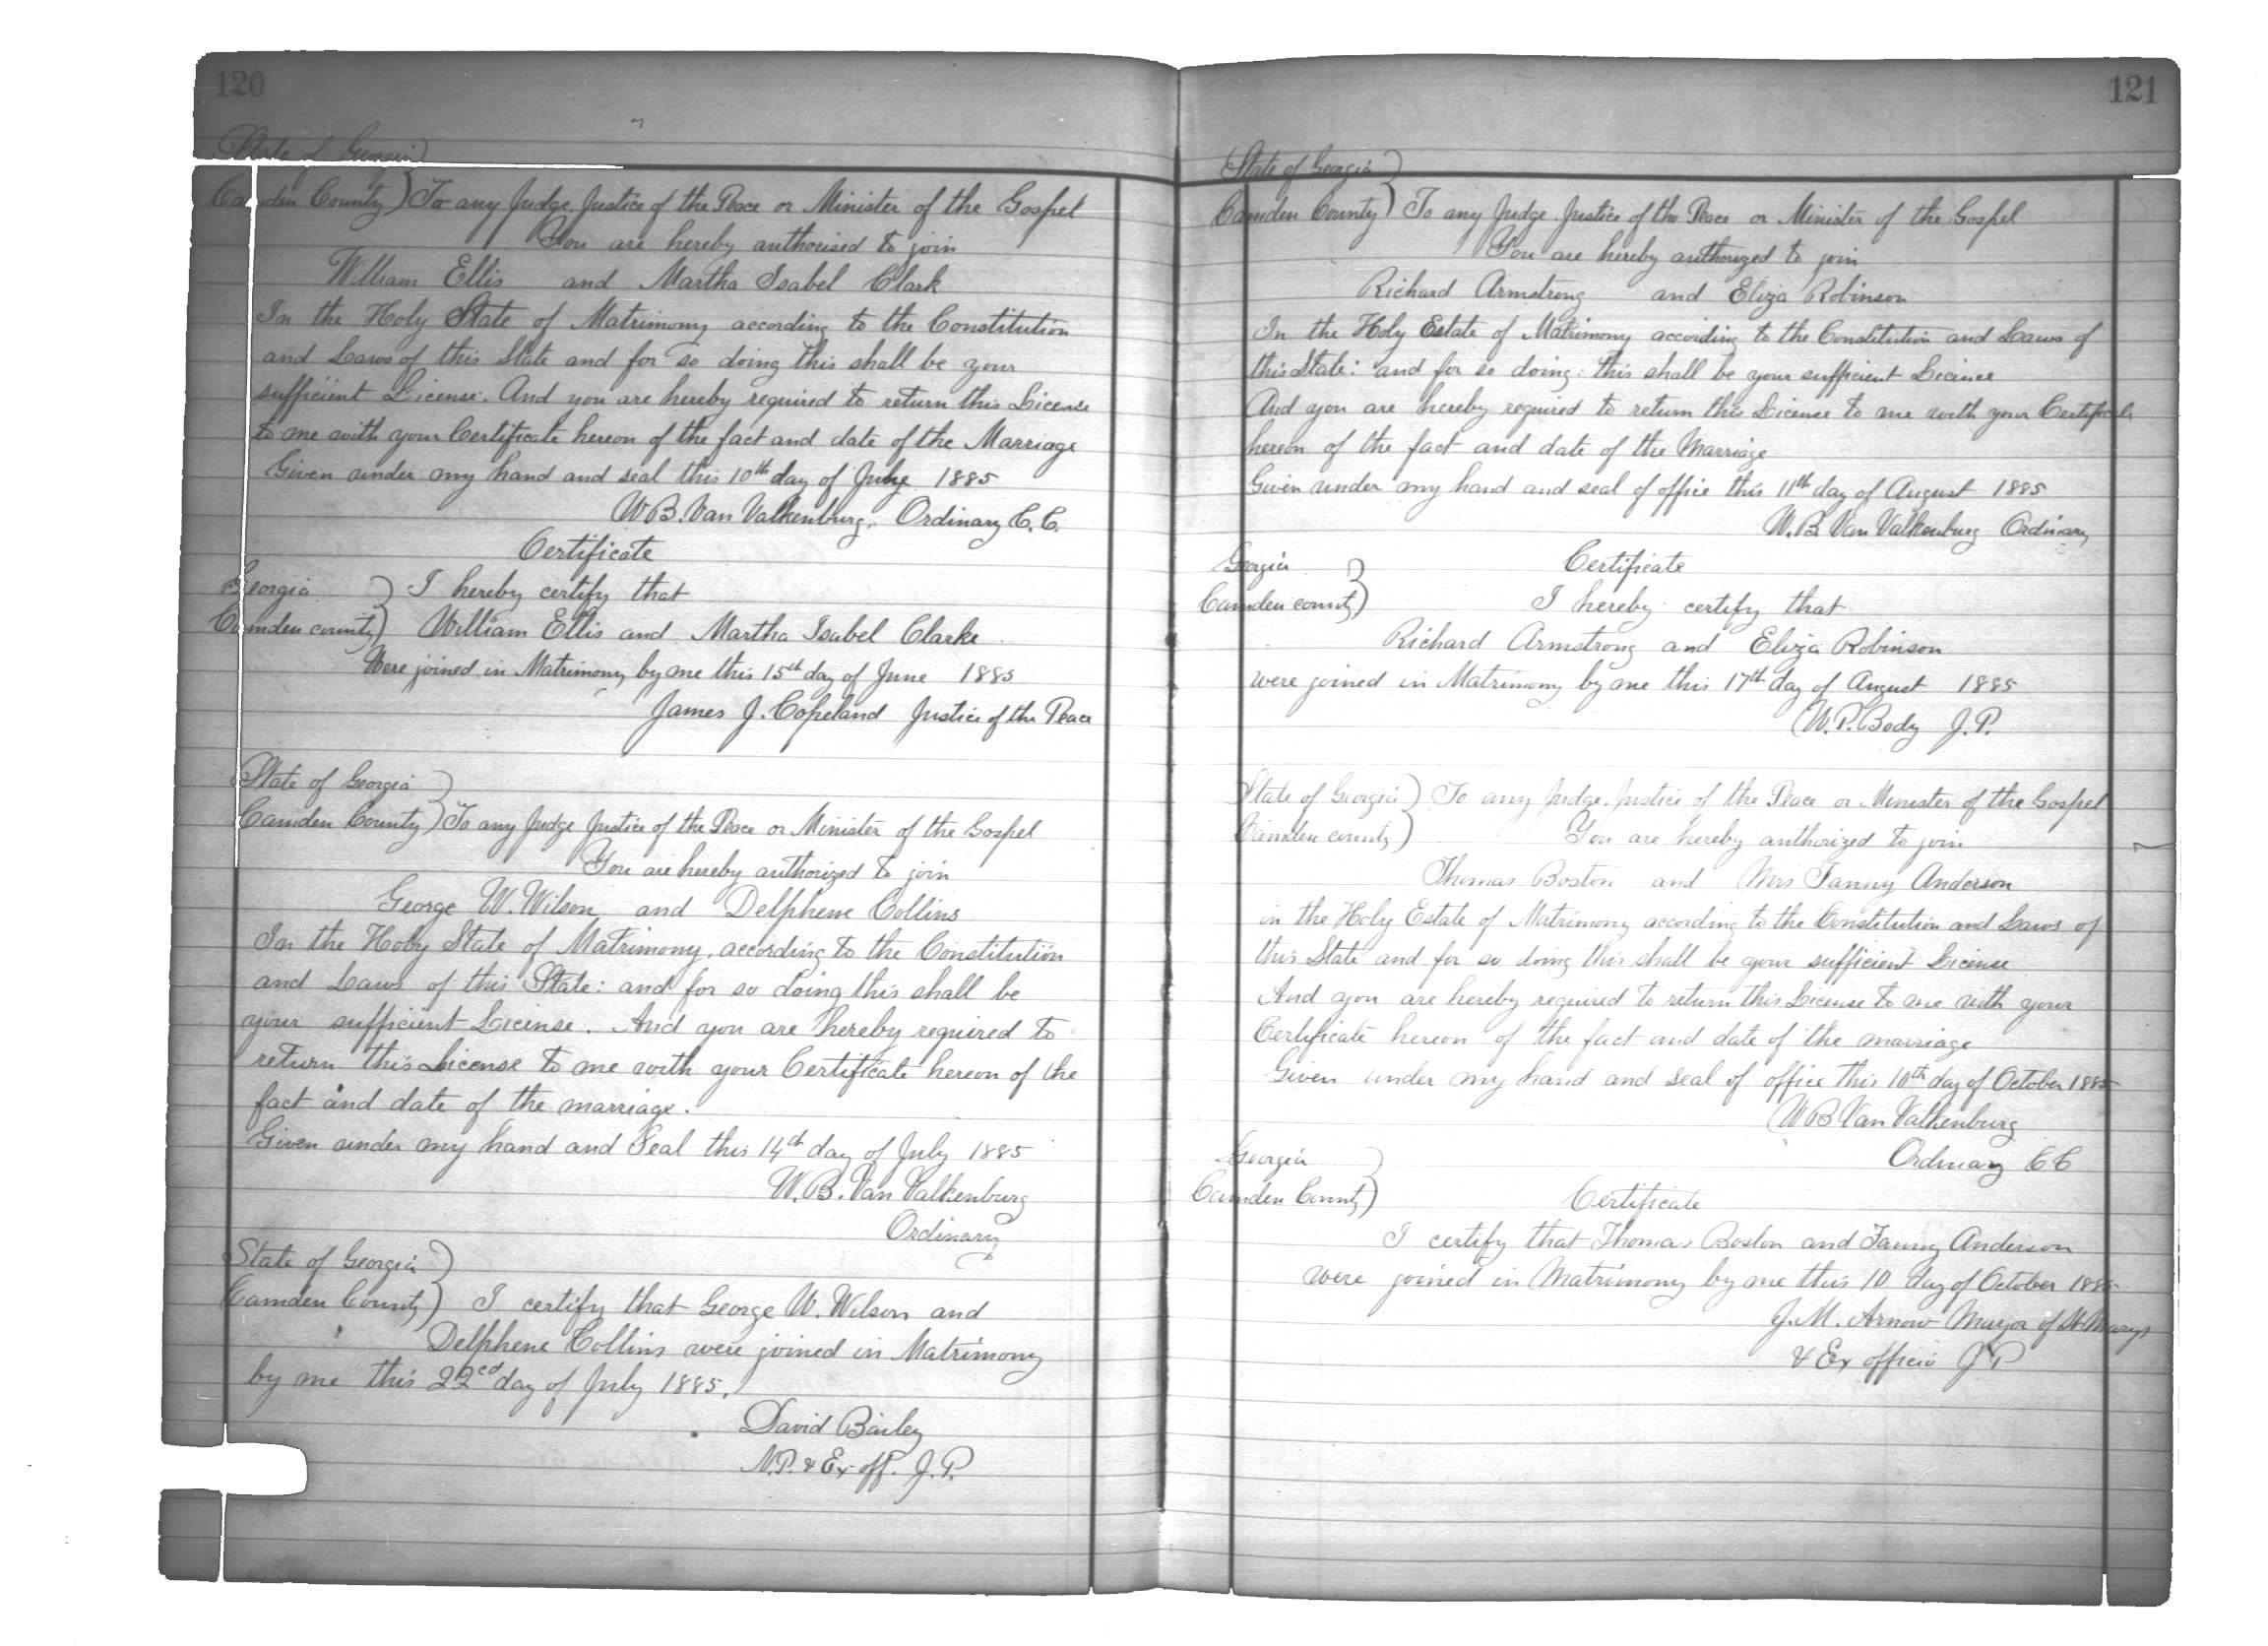 120
State of Georgia)
Camden County) To any Judge, Justice of the Peace or Minister of the Gospel
You are hereby authorised to join
William Ellis and Martha Isabel Clark
In the Holy State of Matrimony according to the Constitution
and Laws of this State and for so doing this shall be your
sufficient License. And you are hereby required to return this License
to me with your Certificate hereon of the fact and date of the Marriage
Given under my hand and seal this 10th day of 1885
W.B. Van Valkenburg, Ordinary C.C.
Certificate
Georgia )
Camden county) I hereby certify that
William Ellis and Martha Isabel Clarke
Were joined in Matrimony by me this 15th day of June 1885
James J. Copeland Justice of the Peace
State of Georgia )
Camden County) To any Judge Justice of the Peace or Minister of the Gospel
You are hereby authorized to join
George W. Wilson and Delphene Collins
In the Holy State of Matrimony, according to the Constitution
and Laws of this State: and for so doing this shall be
your sufficient License. And you are hereby required to
return this License to me with your Certificate hereon of the
fact and date of the marriage.
Given under my hand and Seal this 14th day of July 1885
W.B. Van Valkenburg
Ordinary
State of Georgia )
Camden County) I certify that George W. Wilson and
Delphene Collins were joined in Matrimony
by me this 22cd day of July 1885.
David Bailey
N.P. & Ex-off. J.P.
121
State of Georgia )
Camden County) To any Judge Justice of the Peace or Minister of the Gospel
You are hereby authorized to join
Richard Armstrong and Eliza Robinson
In the Holy Estate of Matrimony according to the Constitution and Laws of
this State: and for so doing this shall be your sufficient Licence
And you are hereby required to return this License to me with your Certificate
hereon of the fact and date of the Marriage
Given under my hand and seal of office this 11th day of August 1885
W.B. Van Valkenburg Ordinary
Georgia )
Camden county) Certificate
I hereby certify that
Richard Armstrong and Eliza Robinson
were joined in Matrimony by me this 17th day of August 1885
W.P. Body J.P.
State of Georgia) To any Judge, Justice of the Peace or Minister of the Gospel
Camden county) You are hereby authorized to join
Thomas Boston and Mrs Fanny Anderson
in the Holy Estate of Matrimony according to the Constitution and Laws of
this State and for so doing this shall be your sufficient License
And you are hereby required to return this License to me with your
Certificate hereon of the fact and date of the marriage
Given under my hand and seal of office this 10th day of October 1885
W B Van Valkenburg
Ordinary C C
Georgia )
Camden County) Certificate
I certify that Thomas Boston and Fanny Anderson
were joined in Matrimony by me this 10 day of October 1885
J.M. Arnow Mayor of St Marys
& Ex officio J P